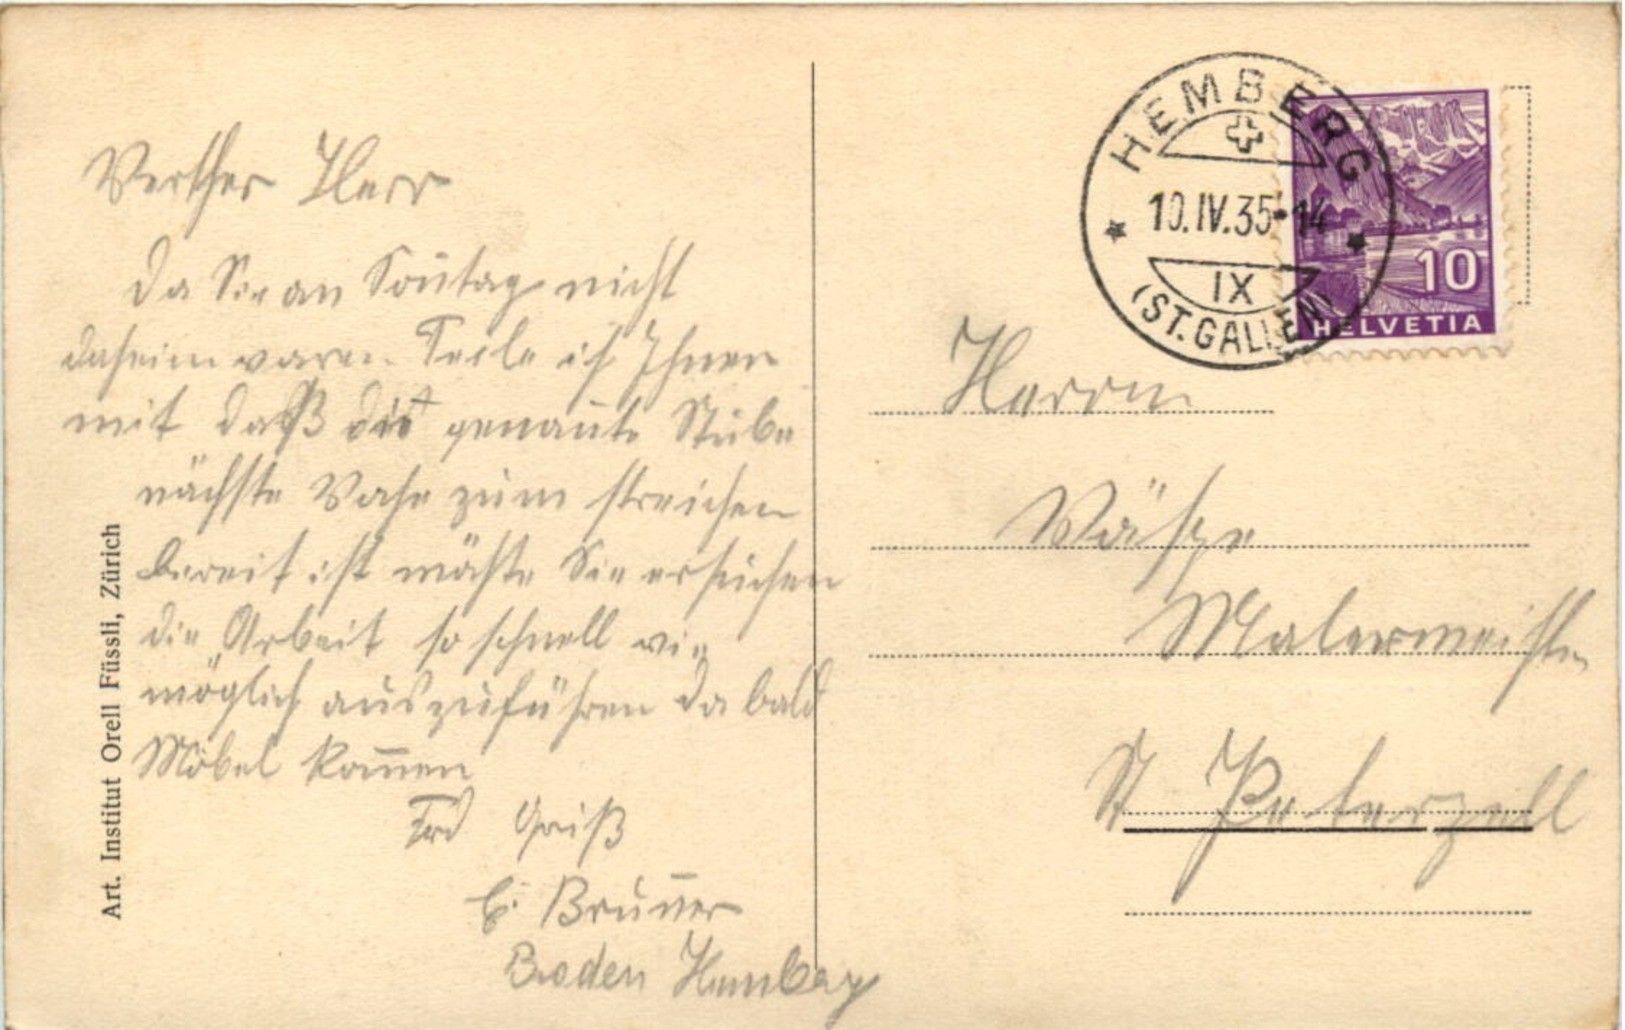 Werther Herr
Da Sie an Sontag nicht
daheim waren Teile ich Ihnen
mit daß die genante Stube
nächste Wohe zum streichen
bereit ist möchte Sie ersuchen
die Arbeit so schnell wie
möglich auszuführen da bald
Möbel kom̅en
Frd Gruß
E. Brun̅er
Boden Hemberg
Art. Institut Orell Füssli, Zürich
HEMBERG
10.IV.35-14
IX
(ST.GALLEN)
10
HELVETIA
Herrn
Wäspe
Malermeister
St Peterzell